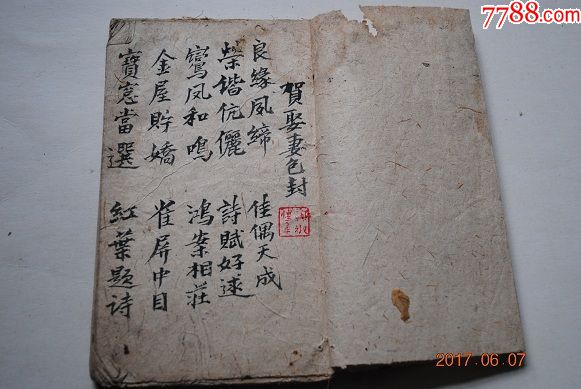 7788.com
賀娶妻包封
良緣夙締 佳偶天成
榮偕伉儷 詩賦好逑
鸞凤和鳴 鴻案相莊
金屋貯嬌 雀屏中目
寶窓當選 紅葉题诗
2017.06.07